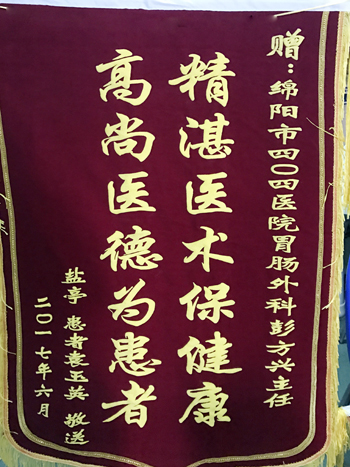 赠：绵阳市四〇四医院胃肠外科彭方兴主任
精湛医术保健康
高尚医德为患者
盐亭 患者袁玉英 敬送
二〇一七年六月